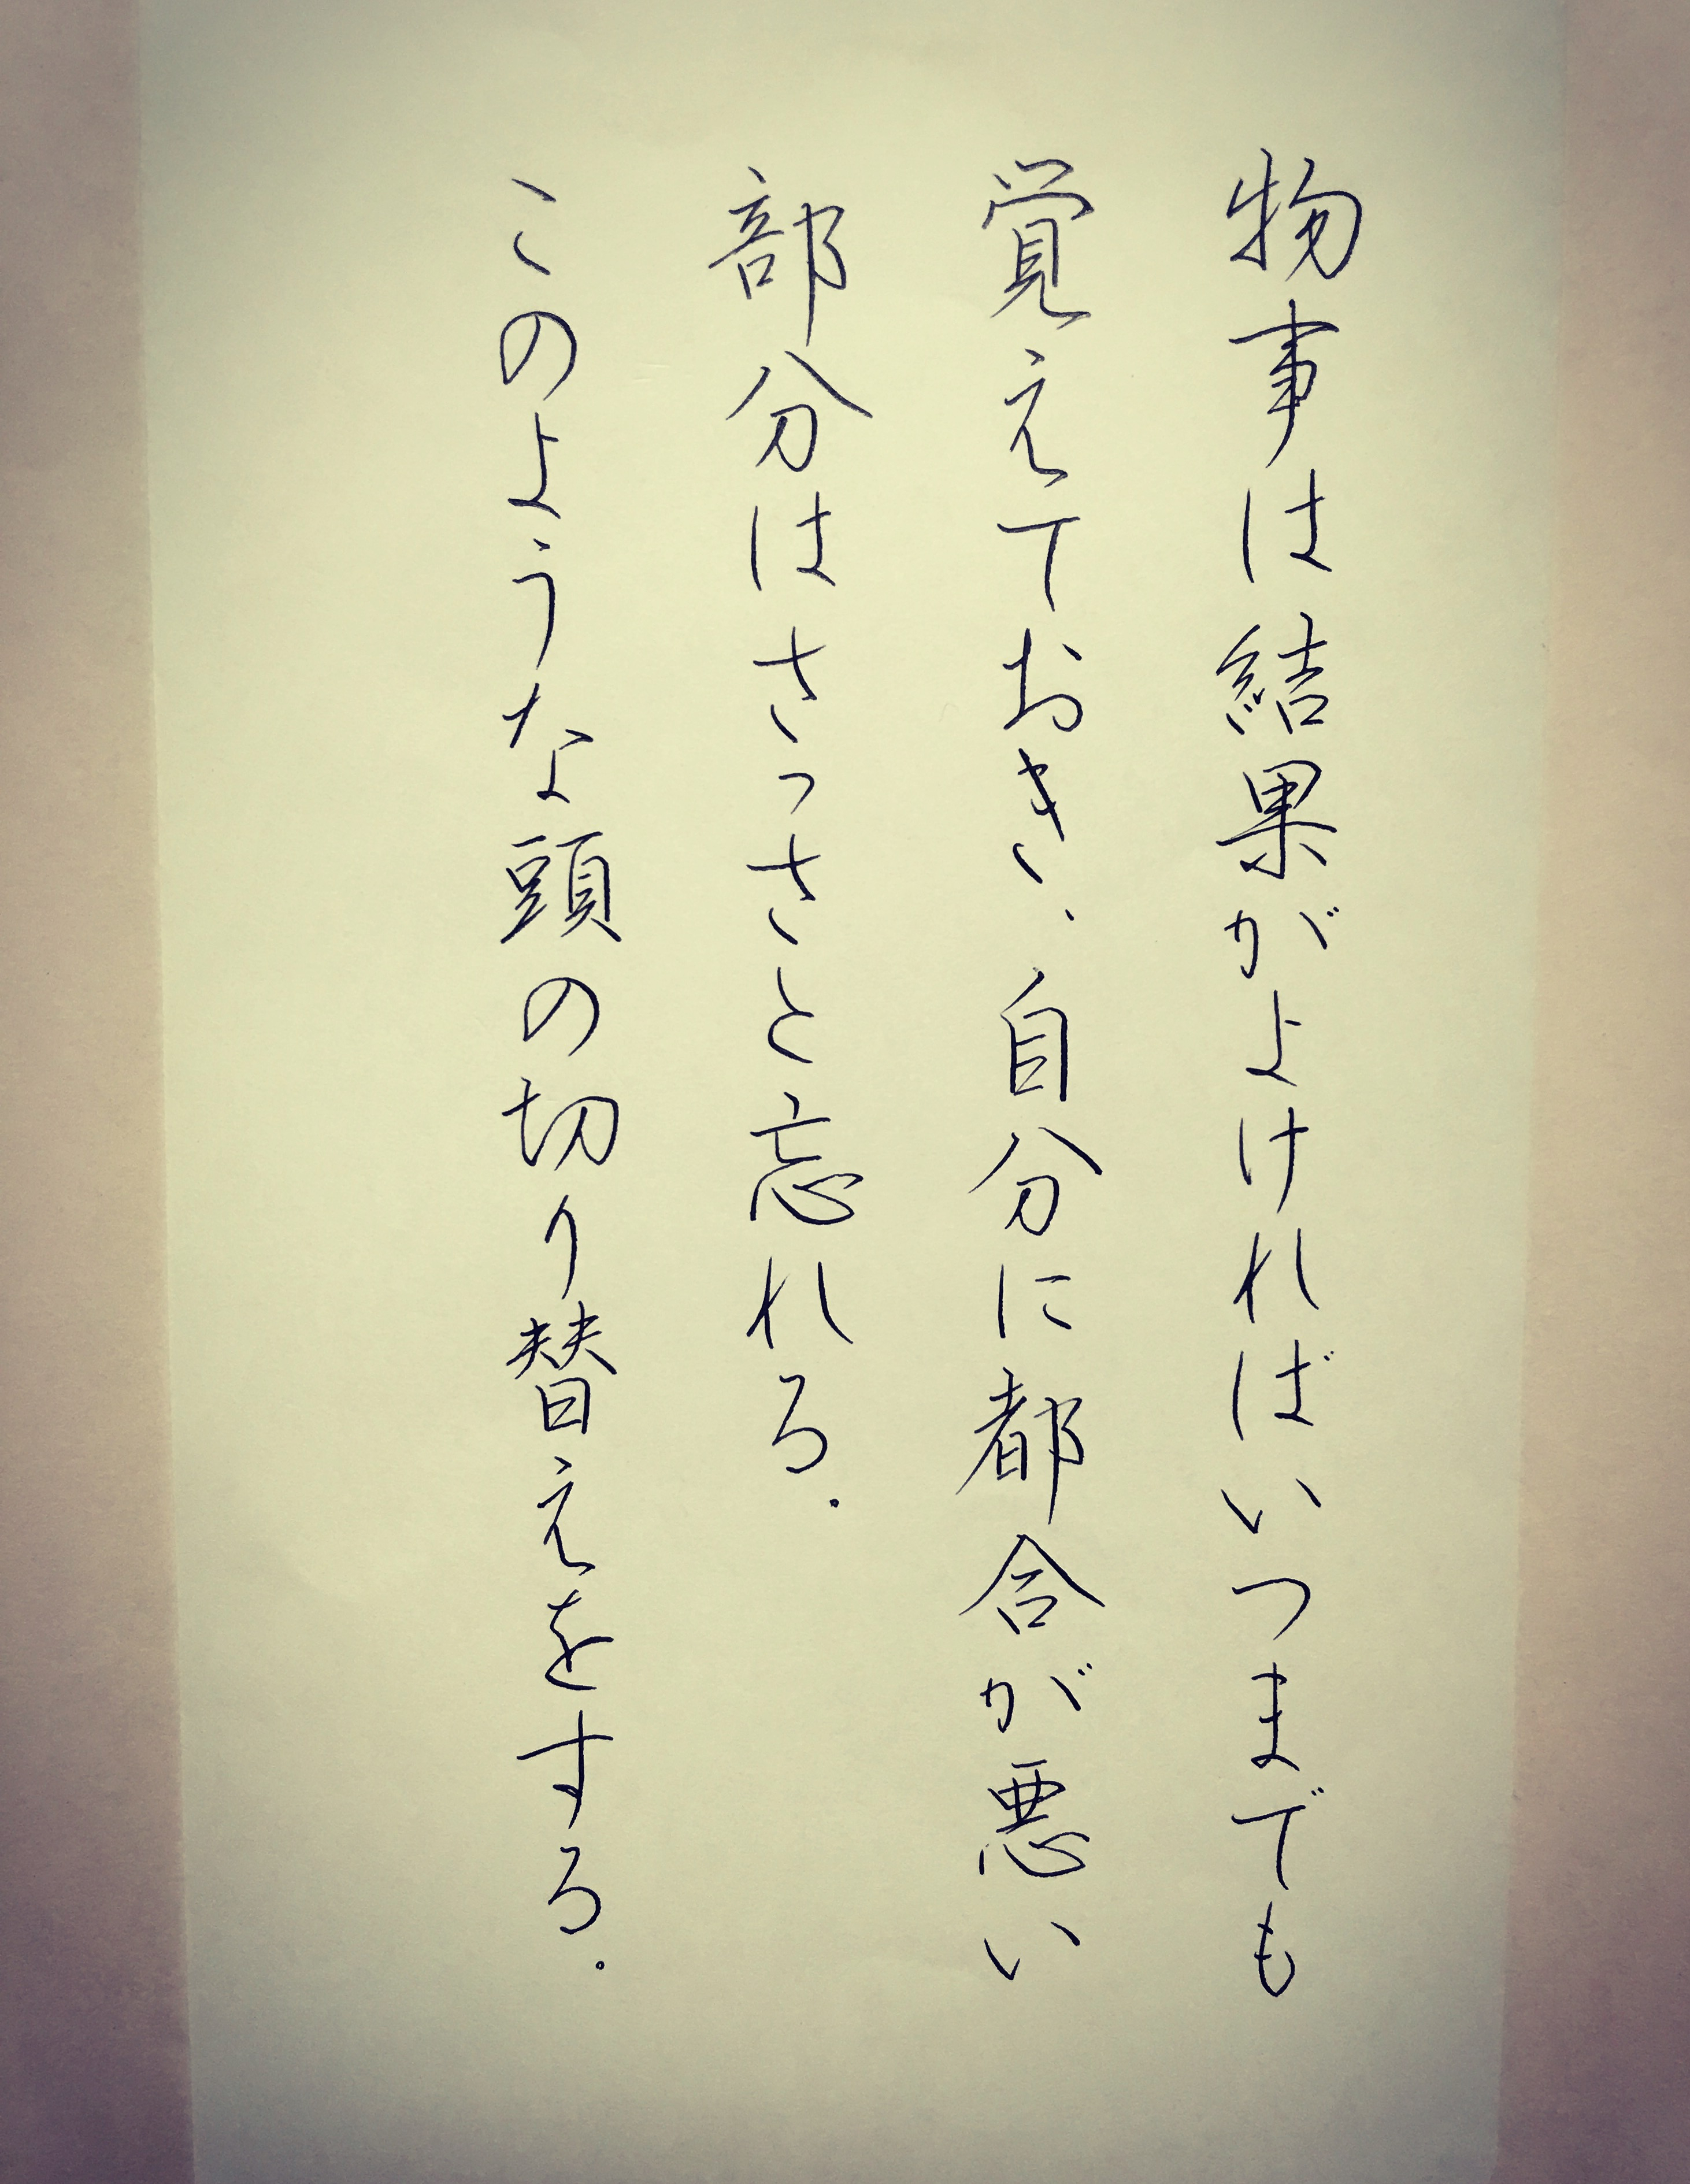 物事は結果がよければいつまでも
覚えておき、自分に都合が悪い
部分はさっさと忘れる。
このような頭の切り替えをする。